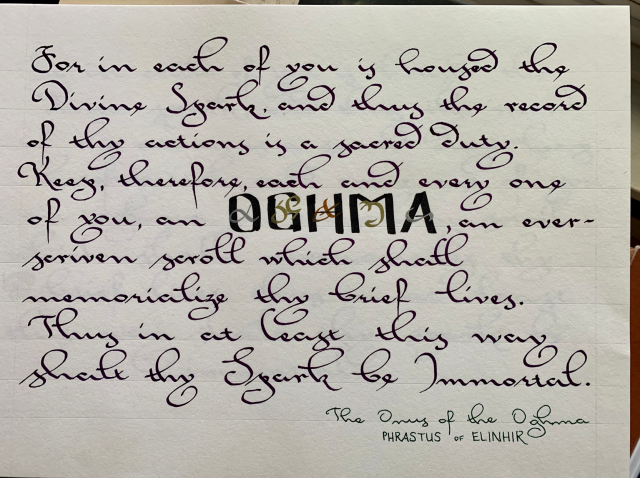 For in each of you is housed the
Divine Spark, and thus the record
of thy actions is a sacred duty.
Keep, therefore, each and every one
of you, an OGHMA, an ever-
scriven scroll which shall
memorialize thy brief lives.
Thus in at least this way
shalt thy Spark be Immortal.
The Onus of the Oghma
PHRASTUS OF ELINHIR